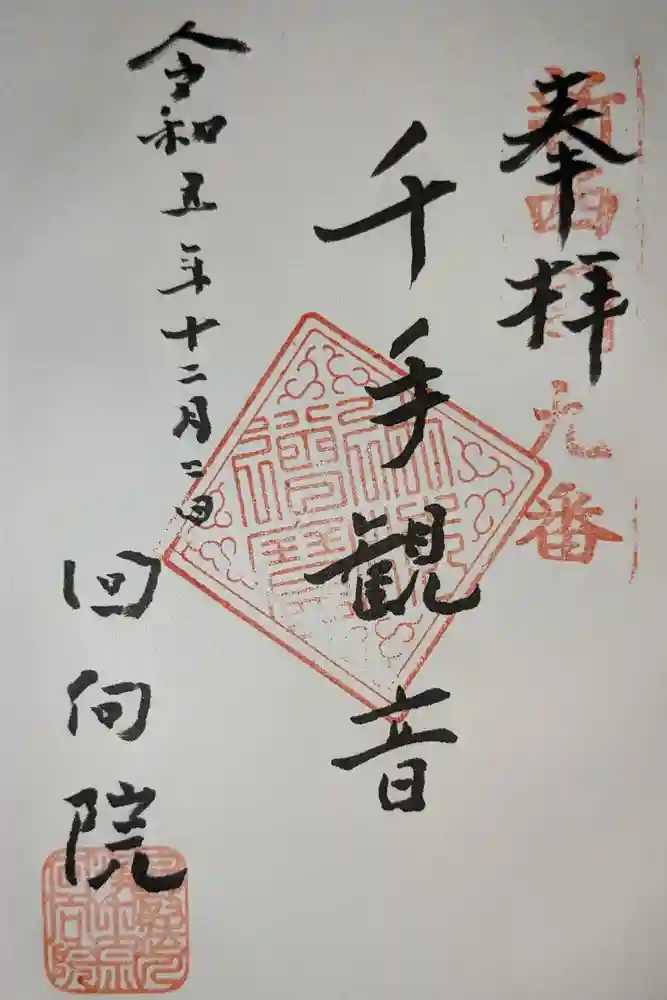 奉拝
新西国
九番
千手観音
令和五年十二月二日
回向院